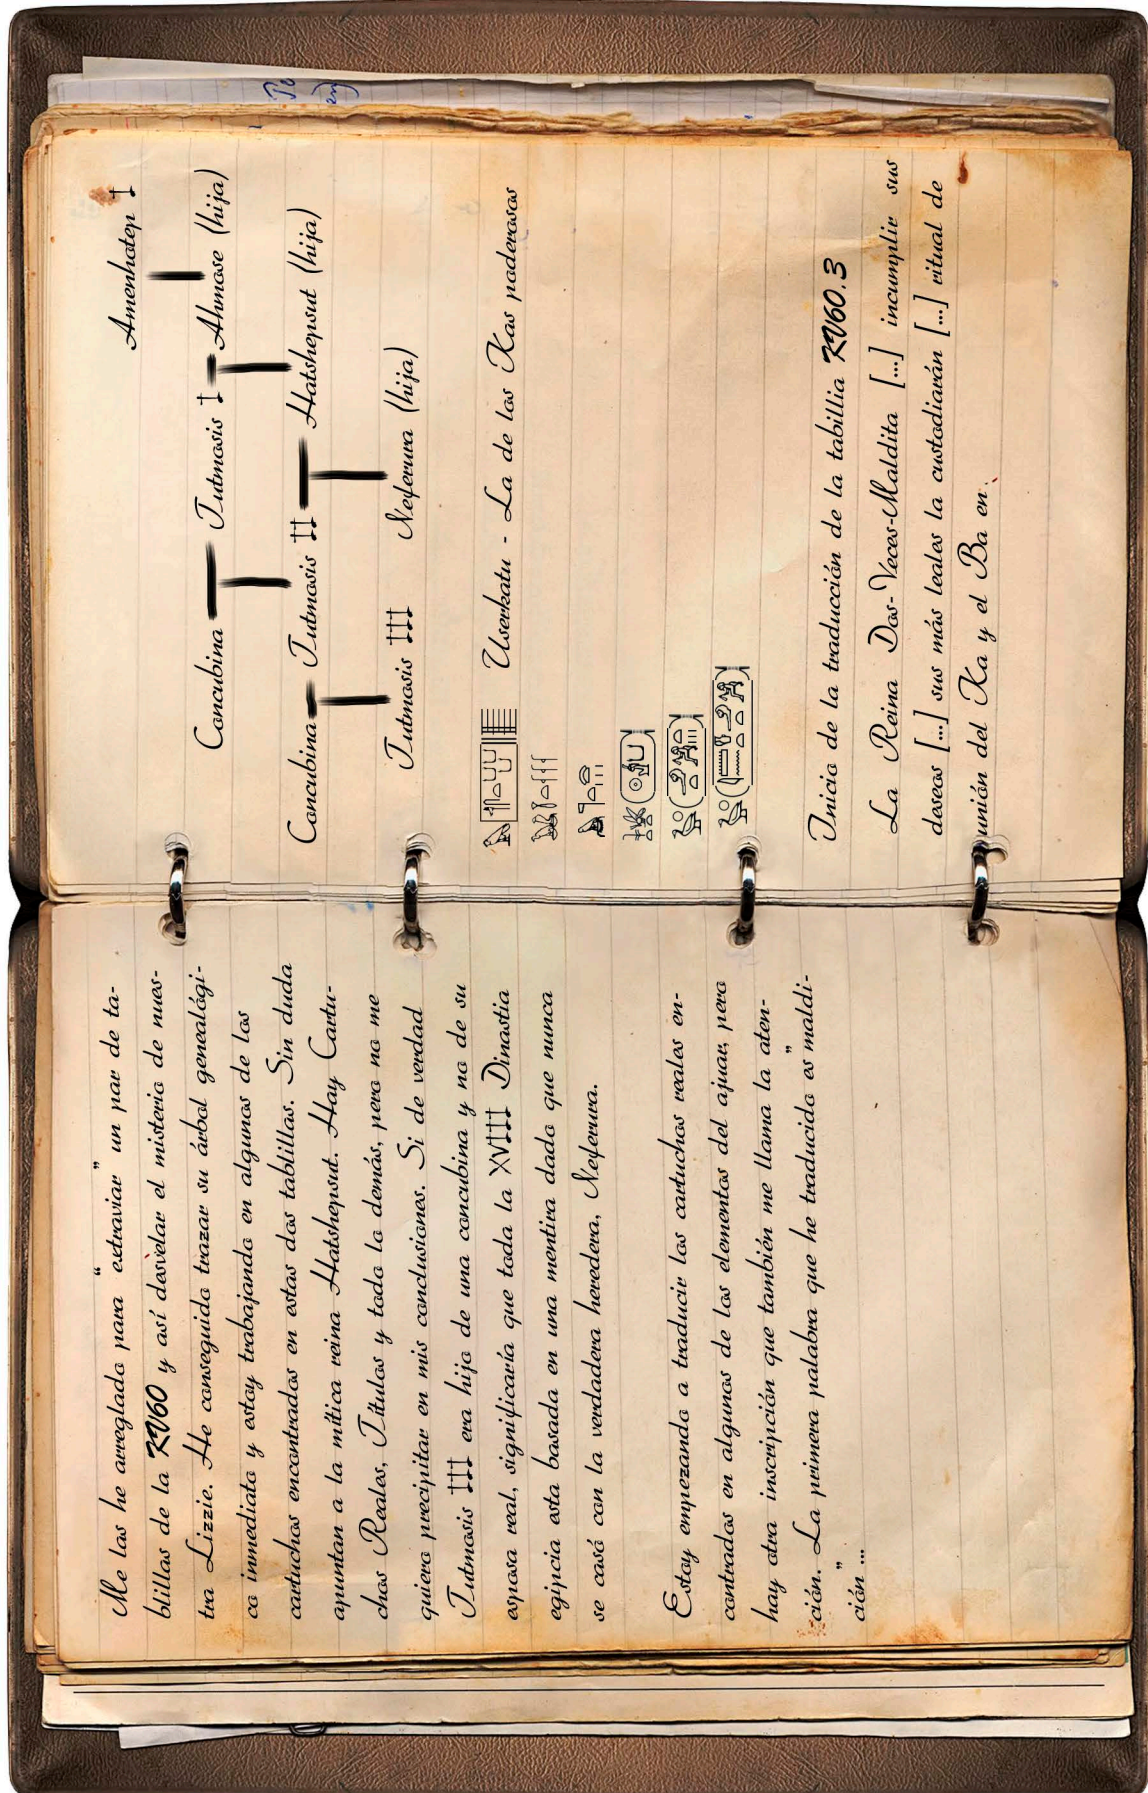 Me las he arreglado para “extraviar” un par de ta-
blillas de la KV60 y así desvelar el misterio de nues-
tra Lizzie. He conseguido trazar su árbol genealógi-
co inmediato y estoy trabajando en algunos de los
cartuchos encontrados en estas dos tablillas. Sin duda
apuntan a la mítica reina Hatshepsut. Hay Cartu-
chos Reales, Títulos y todo lo demás, pero no me
quiero precipitar en mis conclusiones. Si de verdad
Tutmosis III era hijo de una concubina y no de su
esposa real, significaría que toda la XVIII Dinastia
egipcia esta basada en una mentira dado que nunca
se casó con la verdadera heredera, Neferura.
Estoy empezando a traducir los cartuchos reales en-
contrados en algunos de los elementos del ajuar, pero
hay otra inscripción que también me llama la aten-
ción. La primera palabra que he traducido es”maldi-
ción”...
Amenhotep I
Concubina Tutmosis I Ahmose (hija)
Concubina Tutmosis II Hatshepsut (hija)
Tutmosis III Neferura (hija)
Userkatu - La de los Kas poderosos
Inicio de la traducción de la tabillia KV60.3
La Reina Dos-Veces-Maldita [...] incumplir sus
deseos [...] sus más leales la custodiarán [...] ritual de
unión del Ka y el Ba en.